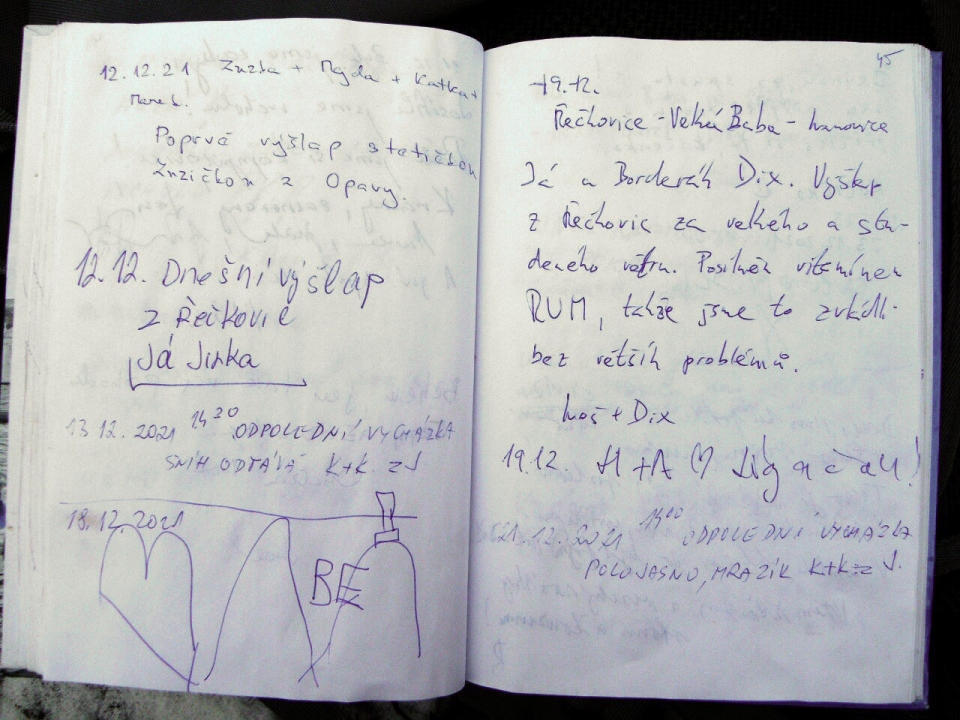 12.12.21 Zuzka + Majda + Katka +
Marek.
Poprvé výšlap s tetičkou
Zuzičkou z Opavy.
12.12. Dnešní výšlap
z Řečkovic
Já Jirka
13.12.2021 14²⁰ ODPOLEDNÍ VYCHÁZKA
SNÍH ODTÁVÁ K+K z J
18.12.2021
BE
45
19.12.
Řečkovice - Velká Baba - Ivanovice
Já a Borderák Dix. Výšlap
z Řečkovic za velkého a stu-
deného větru. Posilněn vitamínem
RUM, takže jsme to zvládli
bez větších problémů.
+ Dix
19.12 H + A ♡
21.12.2021 14²⁰ ODPOLEDNÍ VYCHÁZKA
POLOJASNO, MRAZÍK K+K z J.